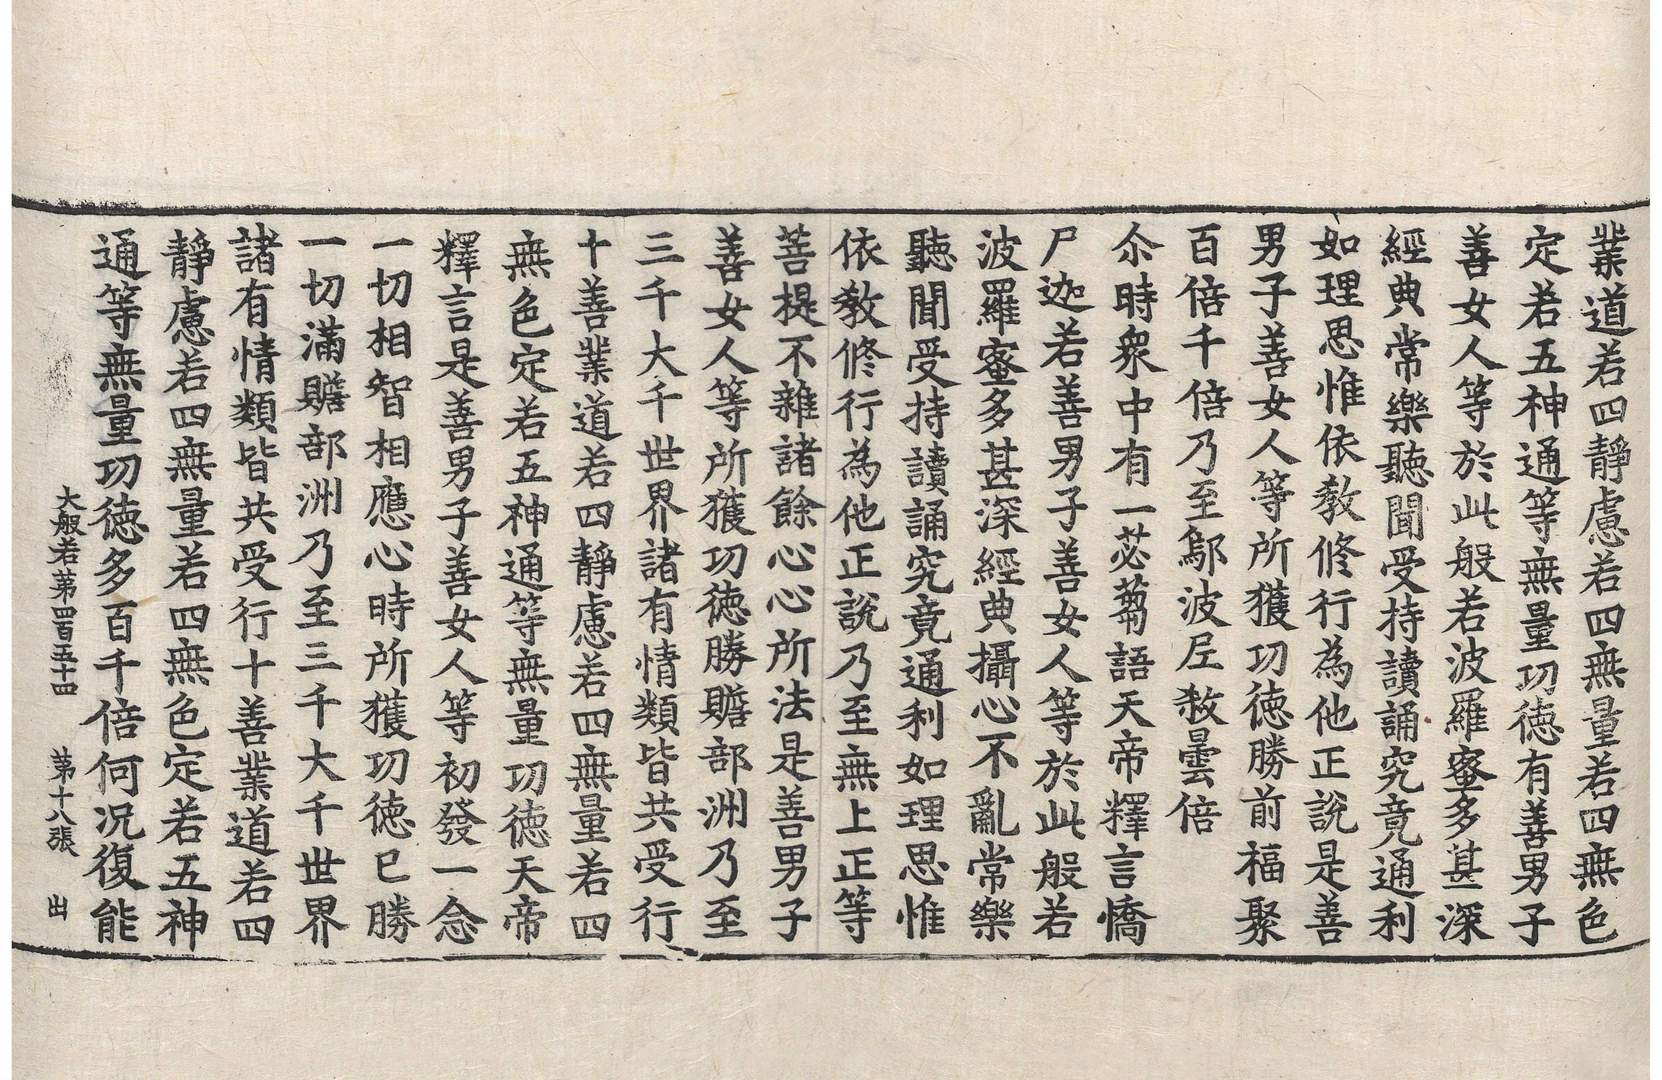 業道若四靜慮若四無量若四無色
定若五神通等無量功德有善男子
善女人等於此般若波羅蜜多甚深
經典常樂聽聞受持讀誦究竟通利
如理思惟依教修行為他正說是善
男子善女人等所獲功德勝前福聚
百倍千倍乃至鄔波尼殺曇倍
尒時衆中有一苾蒭語天帝釋言憍
尸迦若善男子善女人等於此般若
波羅蜜多甚深經典攝心不亂常樂
聽聞受持讀誦究竟通利如理思惟
依教修行為他正說乃至無上正等
菩提不雜諸餘心心所法是善男子
善女人等所獲功德勝贍部洲乃至
三千大千世界諸有情類皆共受行
十善業道若四靜慮若四無量若四
無色定若五神通等無量功德天帝
釋言是善男子善女人等初發一念
一切相智相應心時所獲功德已勝
一切滿贍部洲乃至三千大千世界
諸有情類皆共受行十善業道若四
靜慮若四無量若四無色定若五神
通等無量功德多百千倍何況復能
大般若第四百五十四 第十八張 出